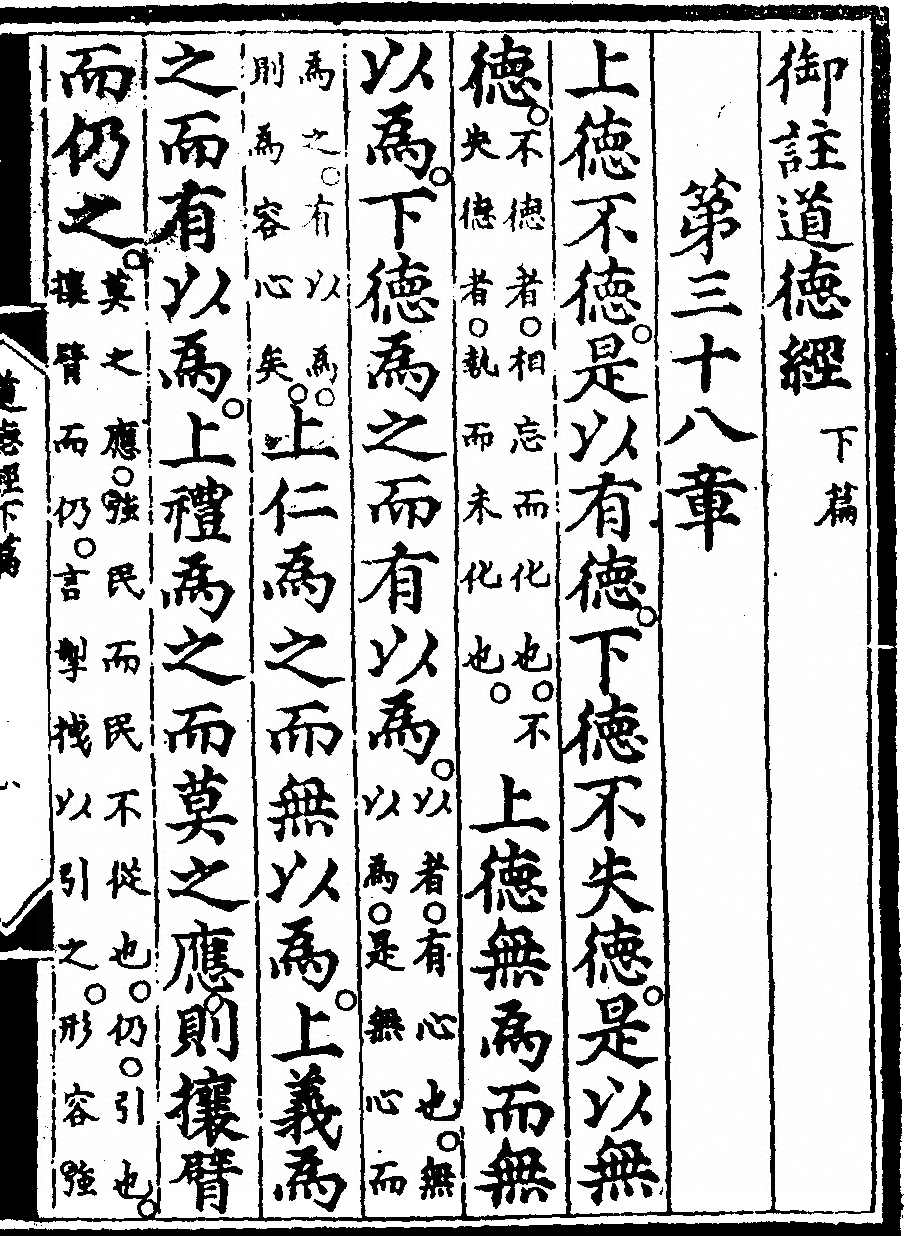 御註道德經 下篇
第三十八章
上德不德。是以有德。下德不失德。是以無
德。不德者。相忘而化也。不失德者。執而未化也。上德無為而無
以為。下德為之而有以為。以者。有心也。無以為。是無心而
為之。有以為。則為容心矣。上仁為之而無以為。上義為
之而有以為。上禮為之而莫之應。則攘臂
而仍之。莫之應。強民而民不從也。仍。引也。攘臂而仍。言掣拽以引之。形容強
道德經下篇